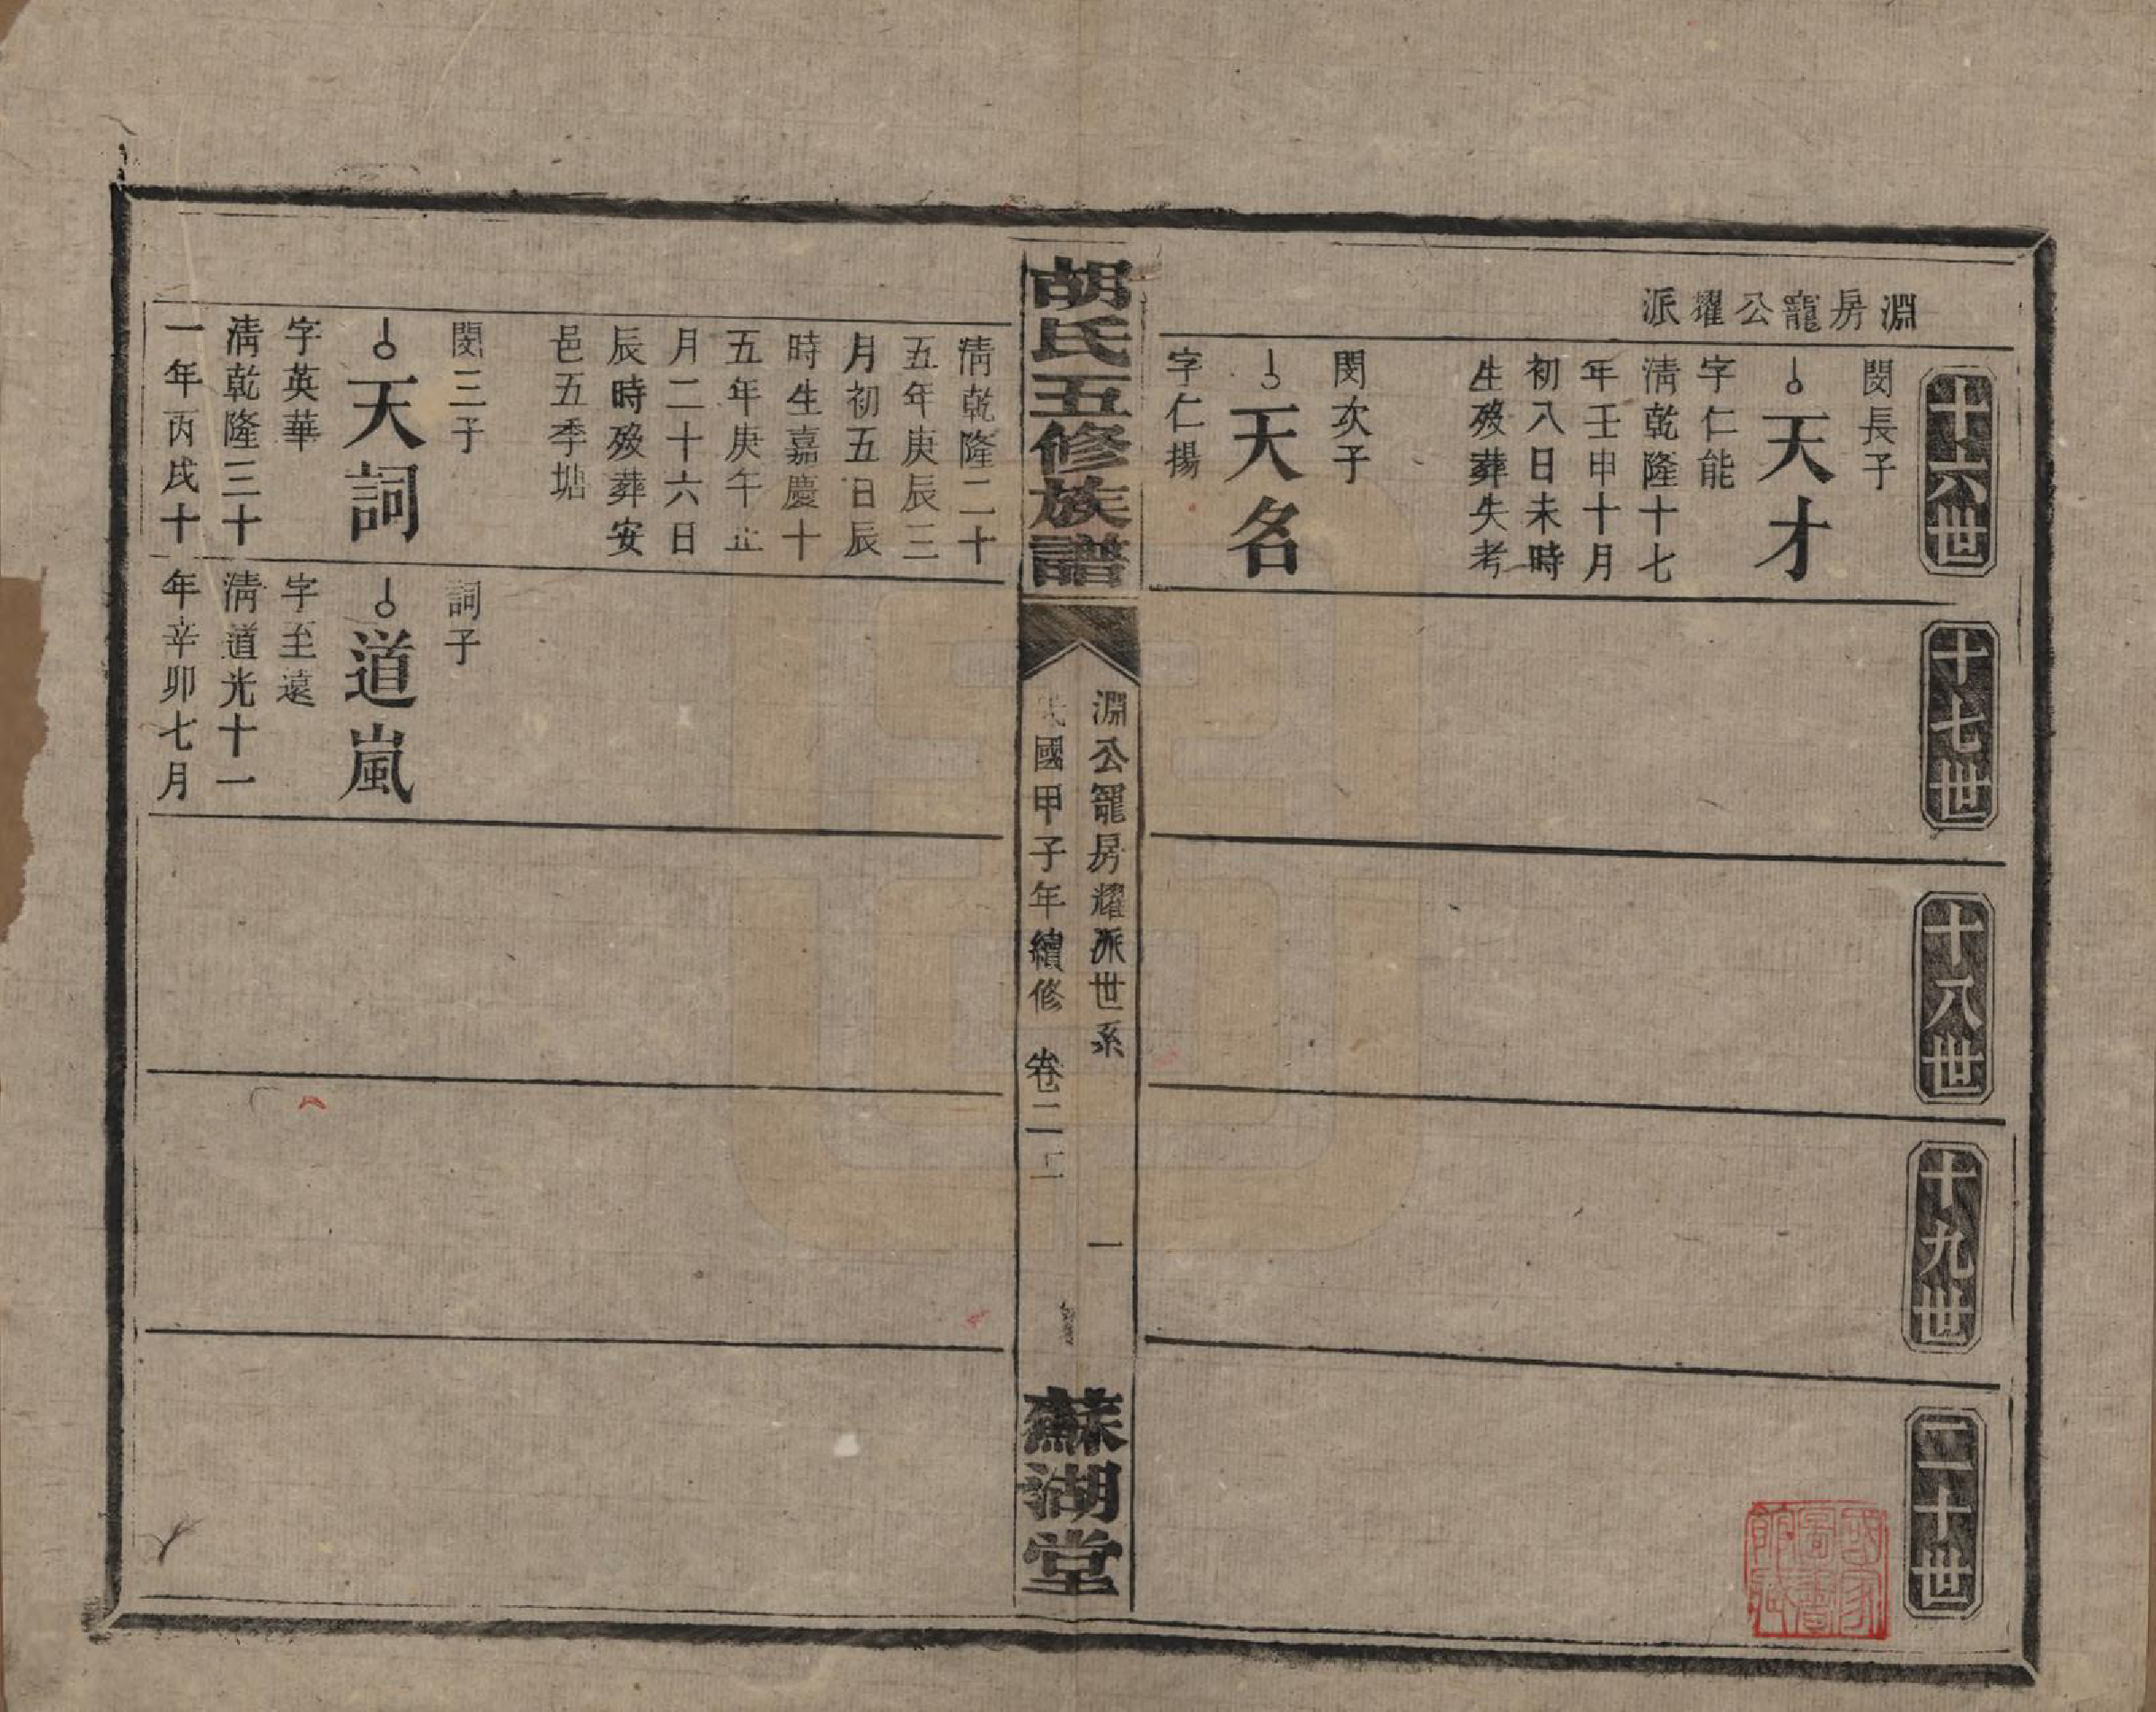 淵房寵公耀派
十六世
閔長子
天才
字仁能
清乾隆十七
年壬申十月
初八日未時
生歿葬失考
閔次子
天名
字仁揚
十七世
十八世
十九世
二十世
國家圖書館藏
胡氏五修族譜
淵公寵房耀派世系
一
民國甲子年續修
卷二
蘇湖堂
清乾隆二十
五年庚辰三
月初五日辰
時生嘉慶十
五年庚午
月二十六日
辰時歿葬安
邑五季塘
閔三子
天詞
字英華
清乾隆三十
一年丙戌十
詞子
道嵐
字至遠
清道光十一
年辛卯七月